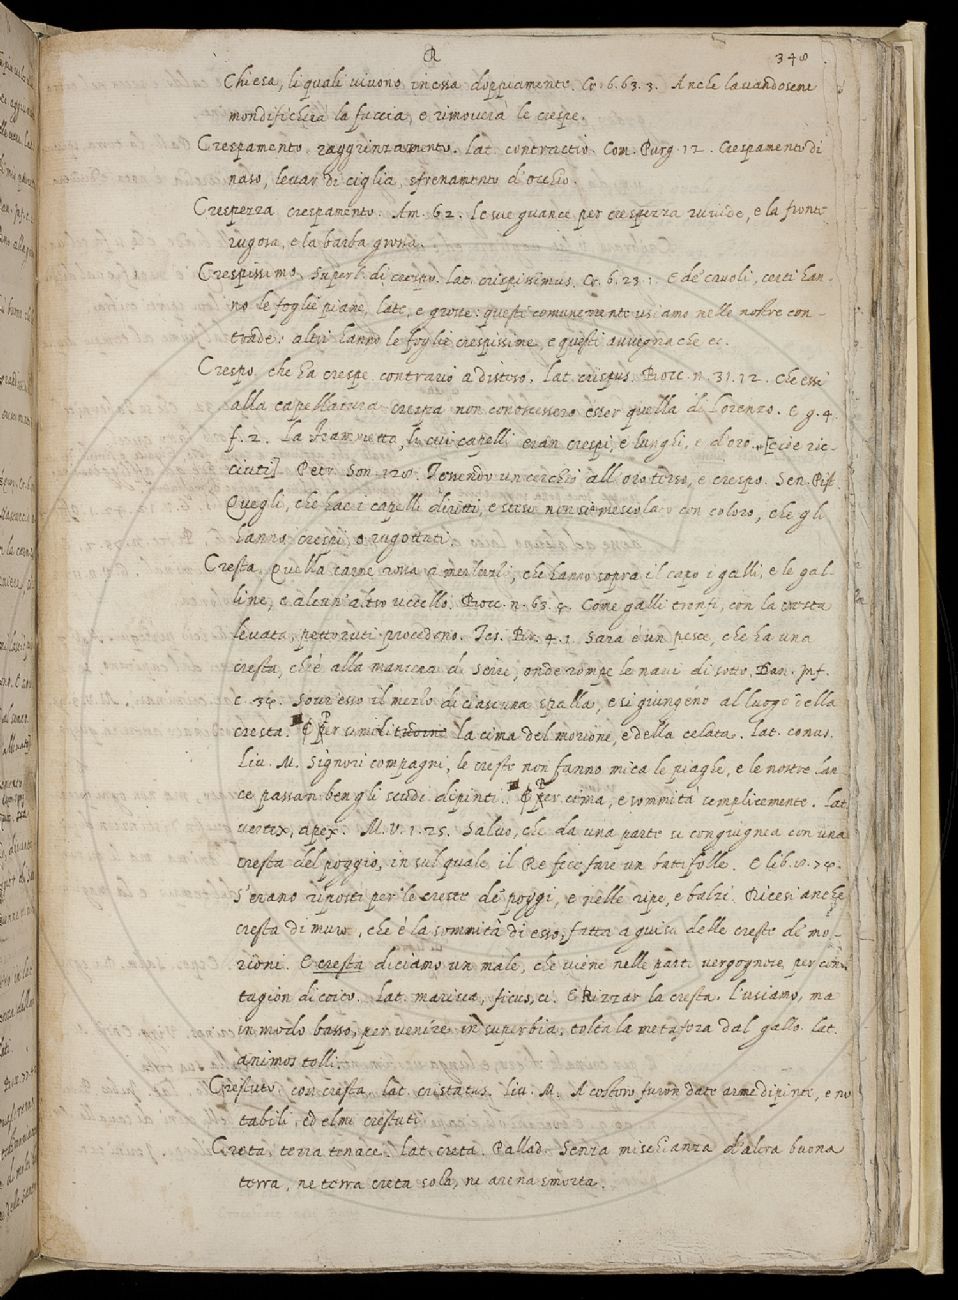 CR 348
Chiesa, li quali vivono in essa doppiamente. Cr. 6. 63. 3. Anche lavandosene
mondificherà la faccia, e rimoverà le crespe.
Crespamento, raggrinzamento. Lat. contractio. Com. Purg. 12. Crespamento di
naso, levar di ciglia, sfrenamento d'occhio.
Crespezza, crespamento. Am. 62. Le sue guance per crespezza ruvide, e la fronte
rugosa, e la barba grossa.
Crespissimo, Superl. di crespo. lat. crispissimus. Cr. 6. 23. 1. E de' cavoli, certi han-
no le foglie piane, late, e grosse: questi comunemente usiamo nelle nostre con-
trade: altri hanno le foglie crespissime, e questi avvegna che ec.
Crespo, che ha crespe, contrario a disteso. lat. crispus. Bocc. n. 31. 12. Che essi
alla capellatura crespa non conoscessero esser quella di Lorenzo. E g. 4.
f. 2. La Fiammetta, li cui capelli eran crespi, e lunghi, e d'oro. [cioè ric-
ciuti] Petr. Son. 128. Tenendo un cerchio all'oro terso, e crespo. Sen. Pist.
Quegli, che ha i capelli diritti, e stesi non si mescola con coloro, che gli
hanno crespi, o rugottati.
Cresta, Quella carne rossa a merluzzi, che hanno sopra il capo i galli, e le gal-
line, e alcun' altro uccello. Bocc. n. 63. Come galli tronfi, con la cresta
levata, pettoruti procedono. Tes. Br. 4. 1. Sara è un pesce, che ha una
cresta, ch'è alla maniera di Seire, onde rompe le navi di sotto. Dan. Inf.
c. 34. Sovr'esso il mezzo di ciascuna spalla, e si giungéno al luogo della
cresta. Per similitudine la cima del morione, e della celata. lat. conus.
Liv. M. Signori compagni, le creste non fanno mica le piaghe, e le nostre lan-
ce passan ben gli scudi dipinti. Per cima, e sommità semplicemente. lat.
vertex, apex. M. V. 1. 25. Salvo, che da una parte si congiugnea con una
cresta del poggio, in sul quale il Re fece fare un battifolle. E lib. 8. 74.
S'erano riposti per le creste de' poggi, e nelle ripe, e balzi. Dicesi anche
cresta di muro, che è la sommità di esso, fatta a guisa delle creste de' mo-
rioni. E cresta diciamo un male, che viene nelle parti vergognose, per con-
tagion di coito. lat. marisca, ficus, ci. E Rizzar la cresta. l'usiamo, ma
in modo basso, per venire in superbia, tolta la metafora dal gallo. lat.
animos tolli.
Crestuto, con cresta, lat. cristatus. Liv. M. A costoro furon date arme dipinte, e no
tabili, ed elmi crestuti.
Creta, terra tenace. lat. creta. Pallad. Senza mischianza d'altra buona
terra, ne terra creta sola, ne arena smorta.